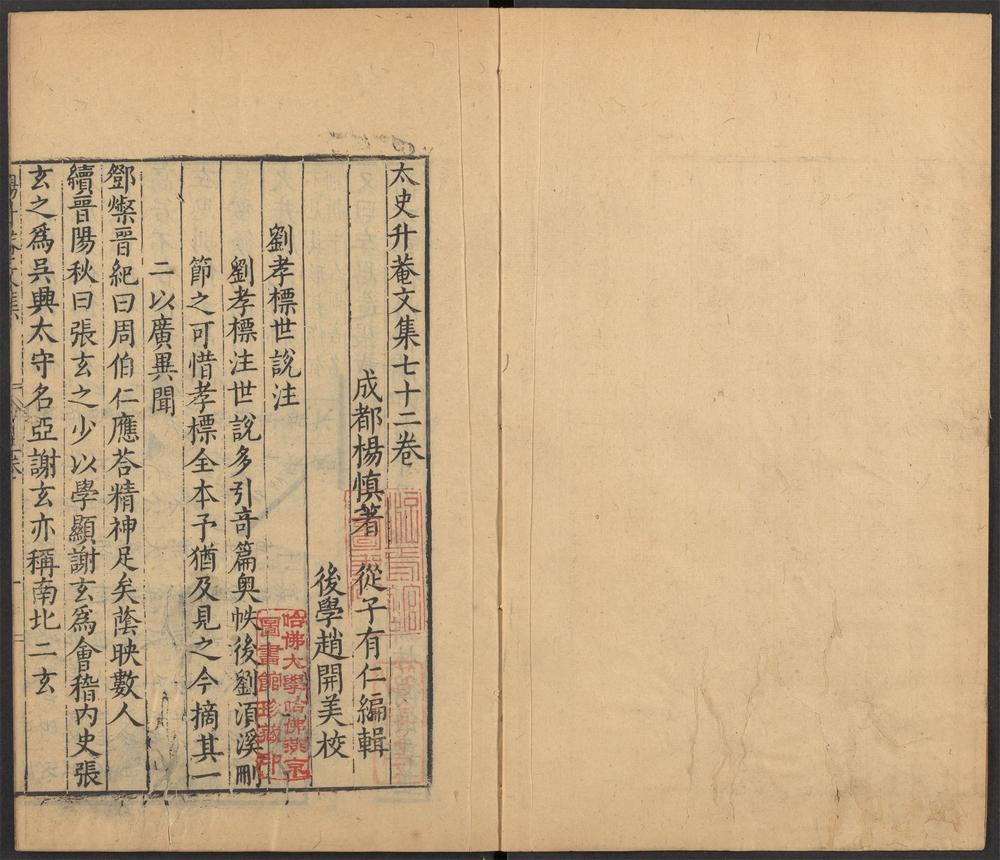 太史升菴文集七十二卷
成都楊慎著 從子有仁編輯
後學趙開美校
劉孝標世說注
劉孝標注世說多引奇篇奧帙後劉湏溪刪
節之可惜孝標全本予猶及見之今摘其一
二以廣異聞
鄧粲晉紀曰周伯仁應荅精神足矣蔭映數人
續晉陽秋曰張玄之少以學顯謝玄爲會稽内史張
玄之爲吳興太守名亞謝玄亦稱南北二玄
哈佛大學哈佛燕京
圖書館珍藏印